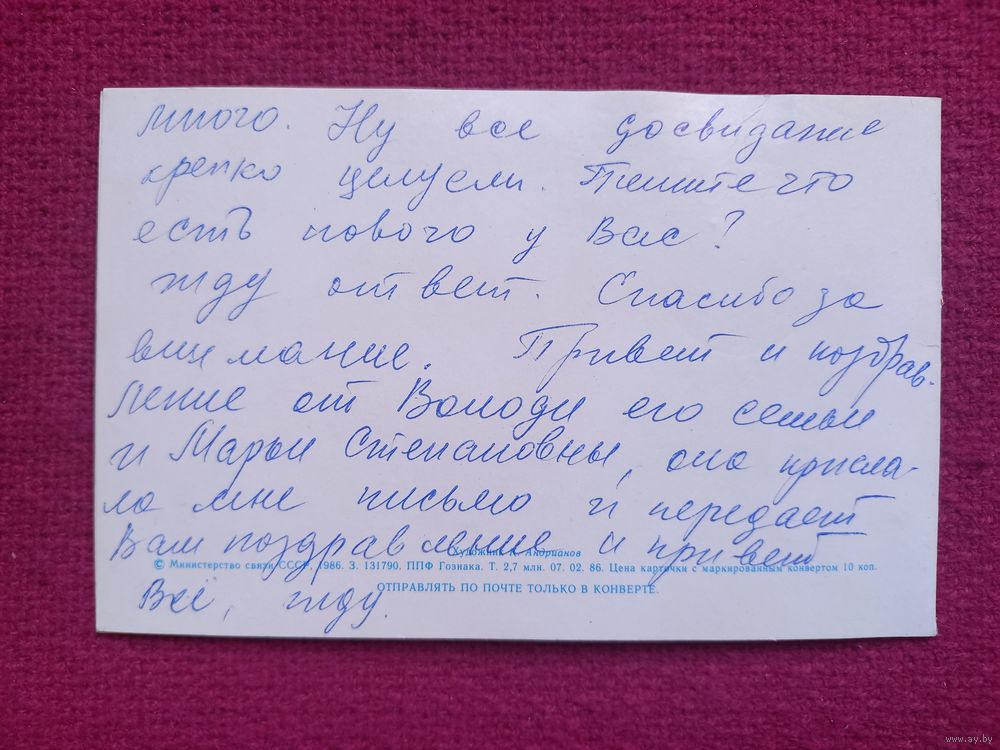 много. Ну все досвидание
крепко целуем. Пишите что
есть нового у Вас?
жду ответ. Спасибо за
внимание. Привет и поздрав-
ление от Володи его семьи
и Марьи Степановны, она присла-
ла мне письмо и передает
Вам поздравление и привет
Художник Андрианов
© Министерство связи СССР, 1986. З. 131790. ППФ Гознака. Т. 2,7 млн. 07. 02. 86. Цена карточки с маркированным конвертом 10 коп.
ОТПРАВЛЯТЬ ПО ПОЧТЕ ТОЛЬКО В КОНВЕРТЕ.
Всё, жду.
www.ay.by